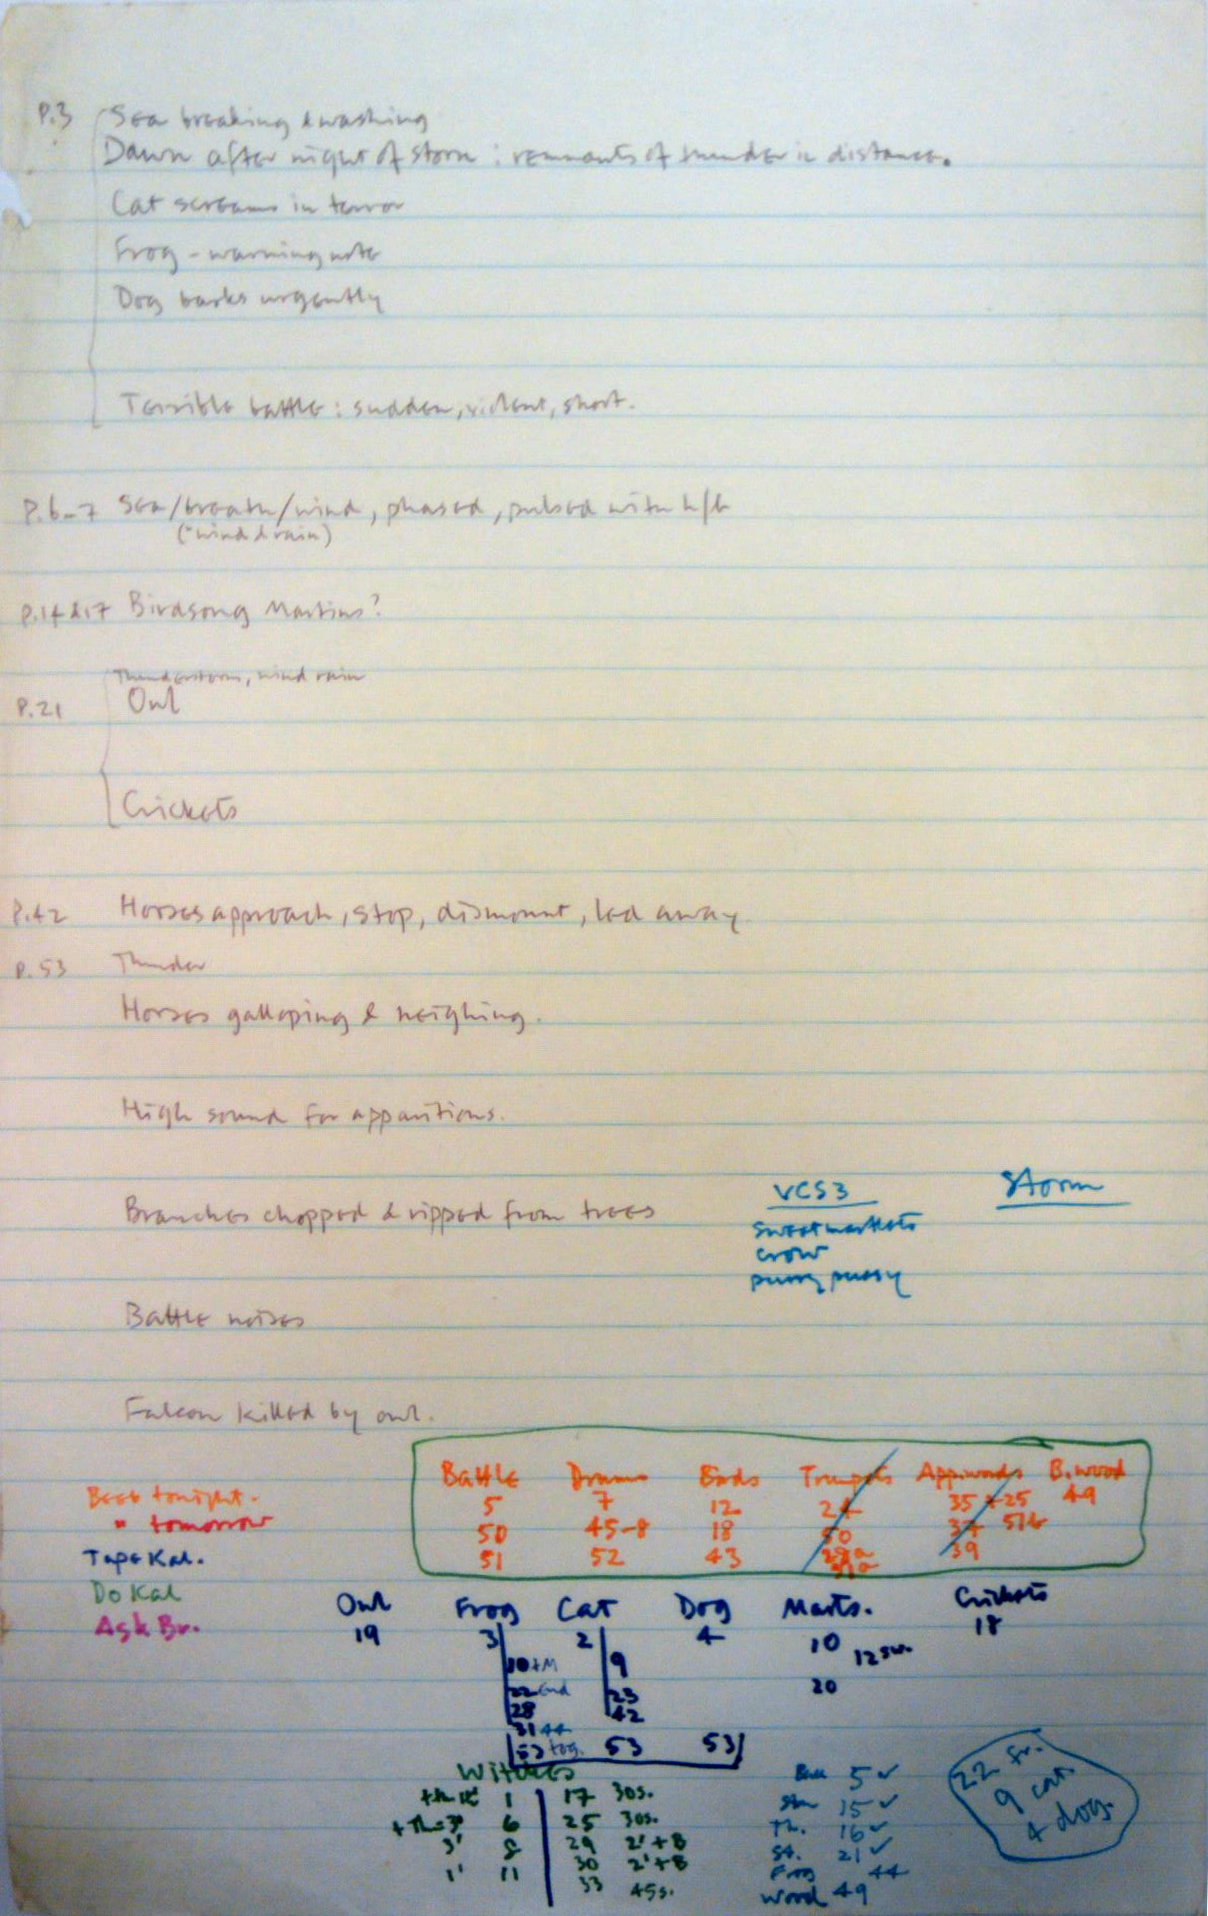 P.3 Sea breaking & washing
Dawn after night of storm : remnants of thunder in distance.
Cat screams in terror
Frog - warning note
Dog barks urgently
Terrible battle : sudden, violent, short.
P.6-7 Sea/breath/wind, phased, pulsed with h/b
(+wind & rain)
P.14 & 17 Birdsong Martins?
Thunderstorm, wind rain
P.21 Owl
Crickets
P.42 Horses approach, stop, dismount, led away
P.53 Thunder
Horses galloping & neighing.
High sound for apparitions.
Branches chopped & ripped from trees
VCS3 Storm
crow
purry pussy
Battle noises
Falcon killed by owl.
Battle Drums Birds Trumpets B. wood
5 7 12 24 35 +25 49
50 45-8 18 50 37 51b
51 52 43 39
Beeb tonight.
" tomorrow
Tape Kal.
Do Kal
Ask Br.
Owl Frog Cat Dog Marts. Crickets
19 3 2 4 10 12 sw. 18
10+M 9
22 end 23 20
28 42
31 44
53 tog. 53 53
Witches
1 17 30s.
6 25 30s.
3' 8 29 2'+B
1' 11 30 2'+B
33 45s.
5 ✓
15 ✓
Th. 16 ✓
St. 21 ✓
Frog 44
Wood 49
22 fr.
9 cat
4 dog.